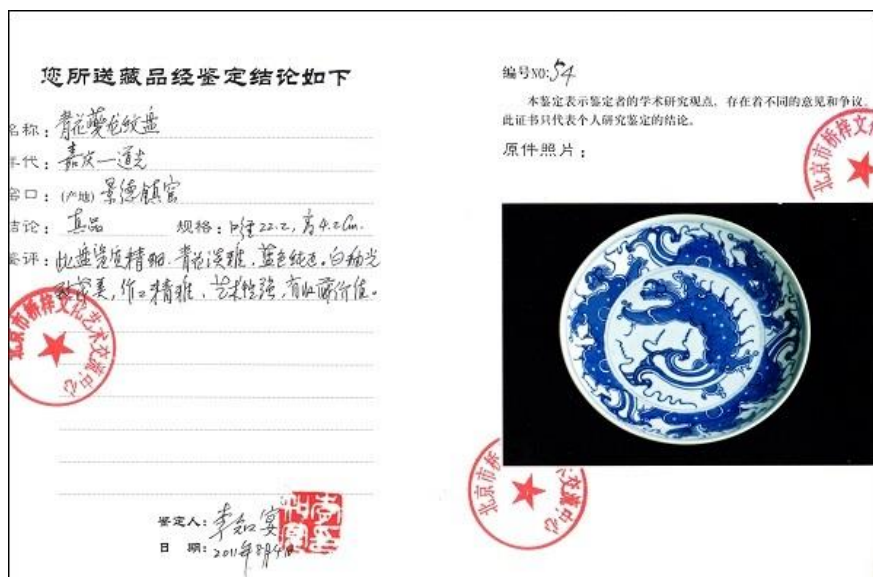 您所送藏品经鉴定结论如下
名称：青花夔龙纹盘
年代：嘉庆—道光
窑口：(产地) 景德镇官
结论：真品 规格：口径22.2，高4.2Cm.
鉴评：此盘瓷质精细．青花淡雅，蓝色纯正。白釉光
美，作工精雅、艺术性强，有收藏价值。
北京市桥梓文化艺术交流中心
鉴定人：李知宴
日 期：2011年8月4日
编号NO:54
本鉴定表示鉴定者的学术研究观点，存在着不同的意见和争议。
此证书只代表个人研究鉴定的结论。
原件照片：
北京市桥梓文化
北京市桥梓 术交流中心